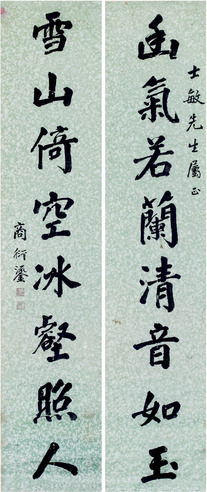 士敏先生属正
幽氣若蘭清音如玉
雪山倚空冰壑照人
商衍鎏